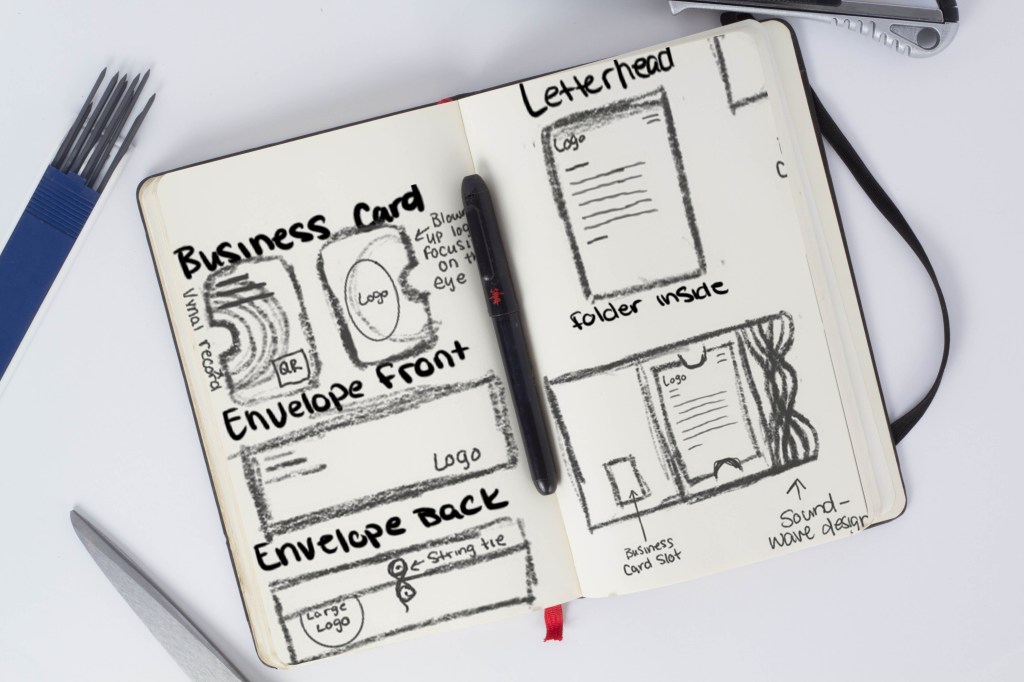 Business Card
Vinal record
QR
Logo
← Blow
up
focusi
on
eye
Envelope Front
Logo
Envelope Back
← String tie
Large
Logo
Letterhead
Logo
folder inside
Logo
Business
Card Slot
Sound-
wave design